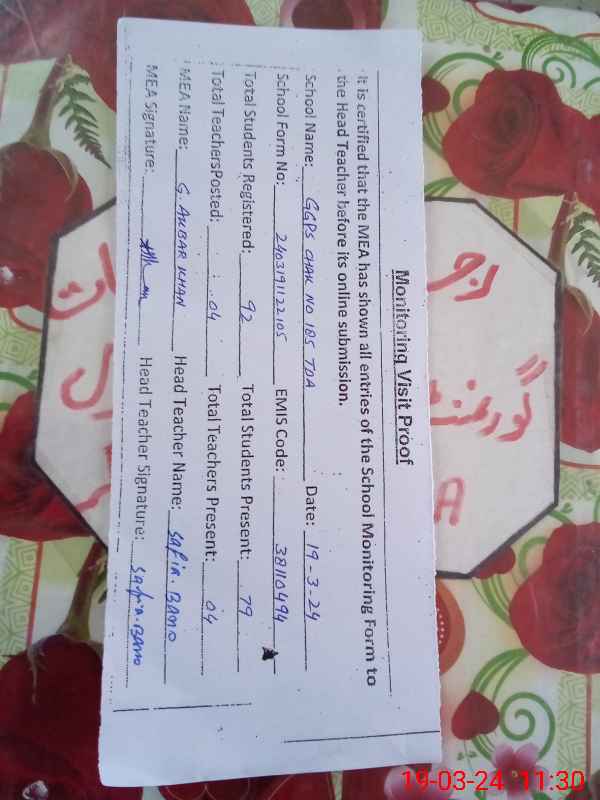 Monitoring Visit Proof
It is certified that the MEA has shown all entries of the School Monitoring Form to
the Head Teacher before its online submission.
School Name: GGPS CHAK NO 185 TDA Date: 19-3-24
School Form No: 240319112 2105 EMIS Code: 38110494
Total Students Registered: 92 Total Students Present: 79
Total TeachersPosted: 04 Total Teachers Present: 04
MEA Name: G. AKBAR KHAN Head Teacher Name: Safia. BANO
MEA Signature: Head Teacher Signature: Safia. BANO
گورنمنٹ
A
19-03-24 11:30